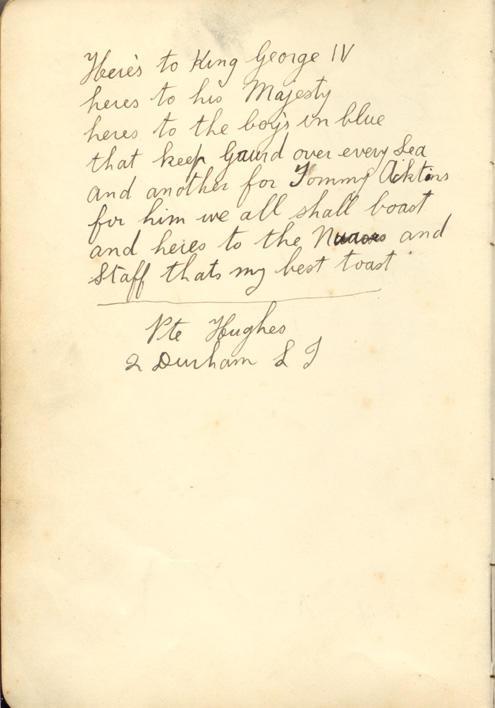 Here's to King George IV
heres to his Majesty
heres to the boys in blue
that keep Gaurd over every Sea
and another for Tommy Acktins
for him we all shall boast
and heres to the and
Staff thats my best toast
Pte Hughes
2 Durham L I